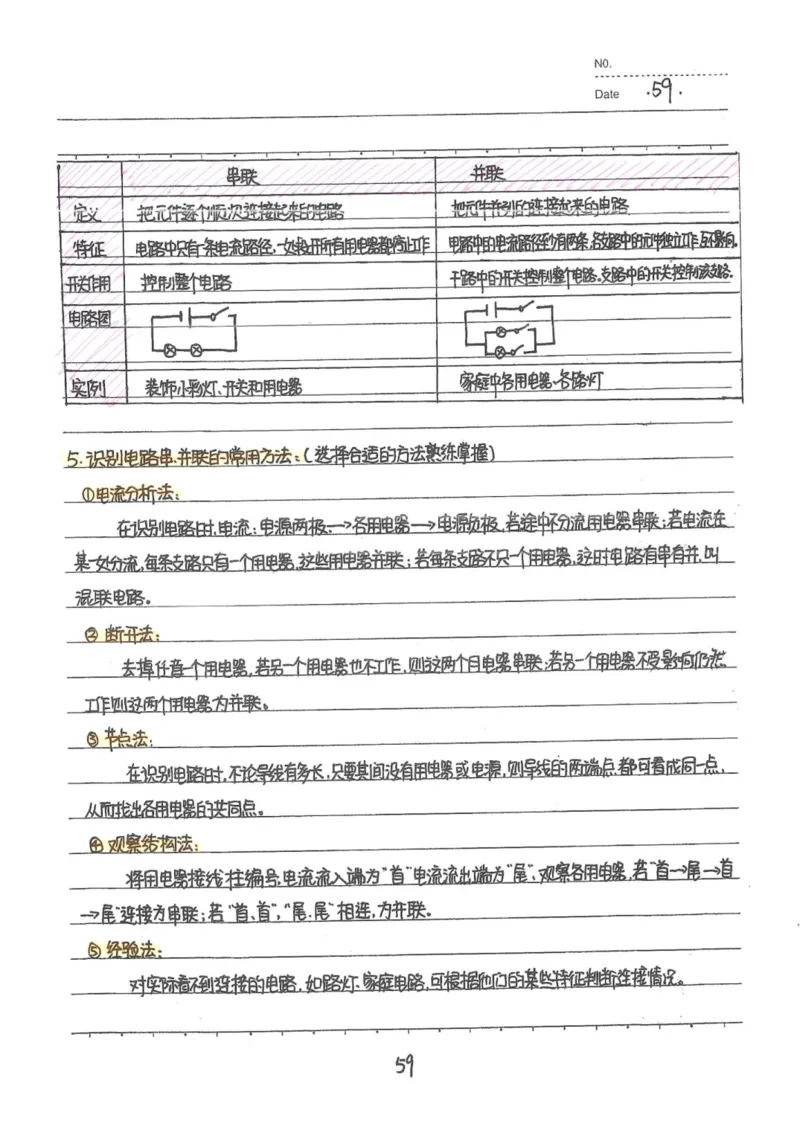 NO.
Date .59.
串联 并联
定义 把元件逐个顺次连接起来的电路 把元件并列的连接起来的电路
特征 电路中只有一条电流路径,一处段开所有用电器都停止工作 电路中的电流路径至少有两条,各支路中的元件独立工作,互不影响。
开关作用 控制整个电路 干路中的开关控制整个电路。支路中的开关控制该支路.
电路图
实列 装饰小彩灯、开关和用电器 家庭中各用电器、各路灯
5.识别电路串.并联的常用方法:(选择合适的方法熟练掌握)
①电流分析法:
在识别电路时,电流:电源两极→各用电器→电源负极,若途中不分流用电器串联;若电流在
某一处分流,每条支路只有一个用电器,这些用电器并联;若每条支路不只一个用电器,这时电路有串有并,叫
混联电路。
②断开法:
去掉任意一个用电器,若另一个用电器也不工作,则这两个用电器串联;若另一个用电器不受影响仍然
工作则这两个用电器为并联。
③节点法:
在识别电路时,不论导线有多长,只要其间没有用电器或电源,则导线的两端点都可看成同一点,
从而找出各用电器的共同点。
④观察结构法:
将用电器接线柱编号,电流流入端为"首"电流流出端为"尾",观察各用电器,若"首→尾→首
→尾"连接为串联;若"首、首","尾、尾"相连,为并联。
⑤经验法:
对实际看不到连接的电路,如路灯、家庭电路,可根据他们的某些特征判断连接情况。
59